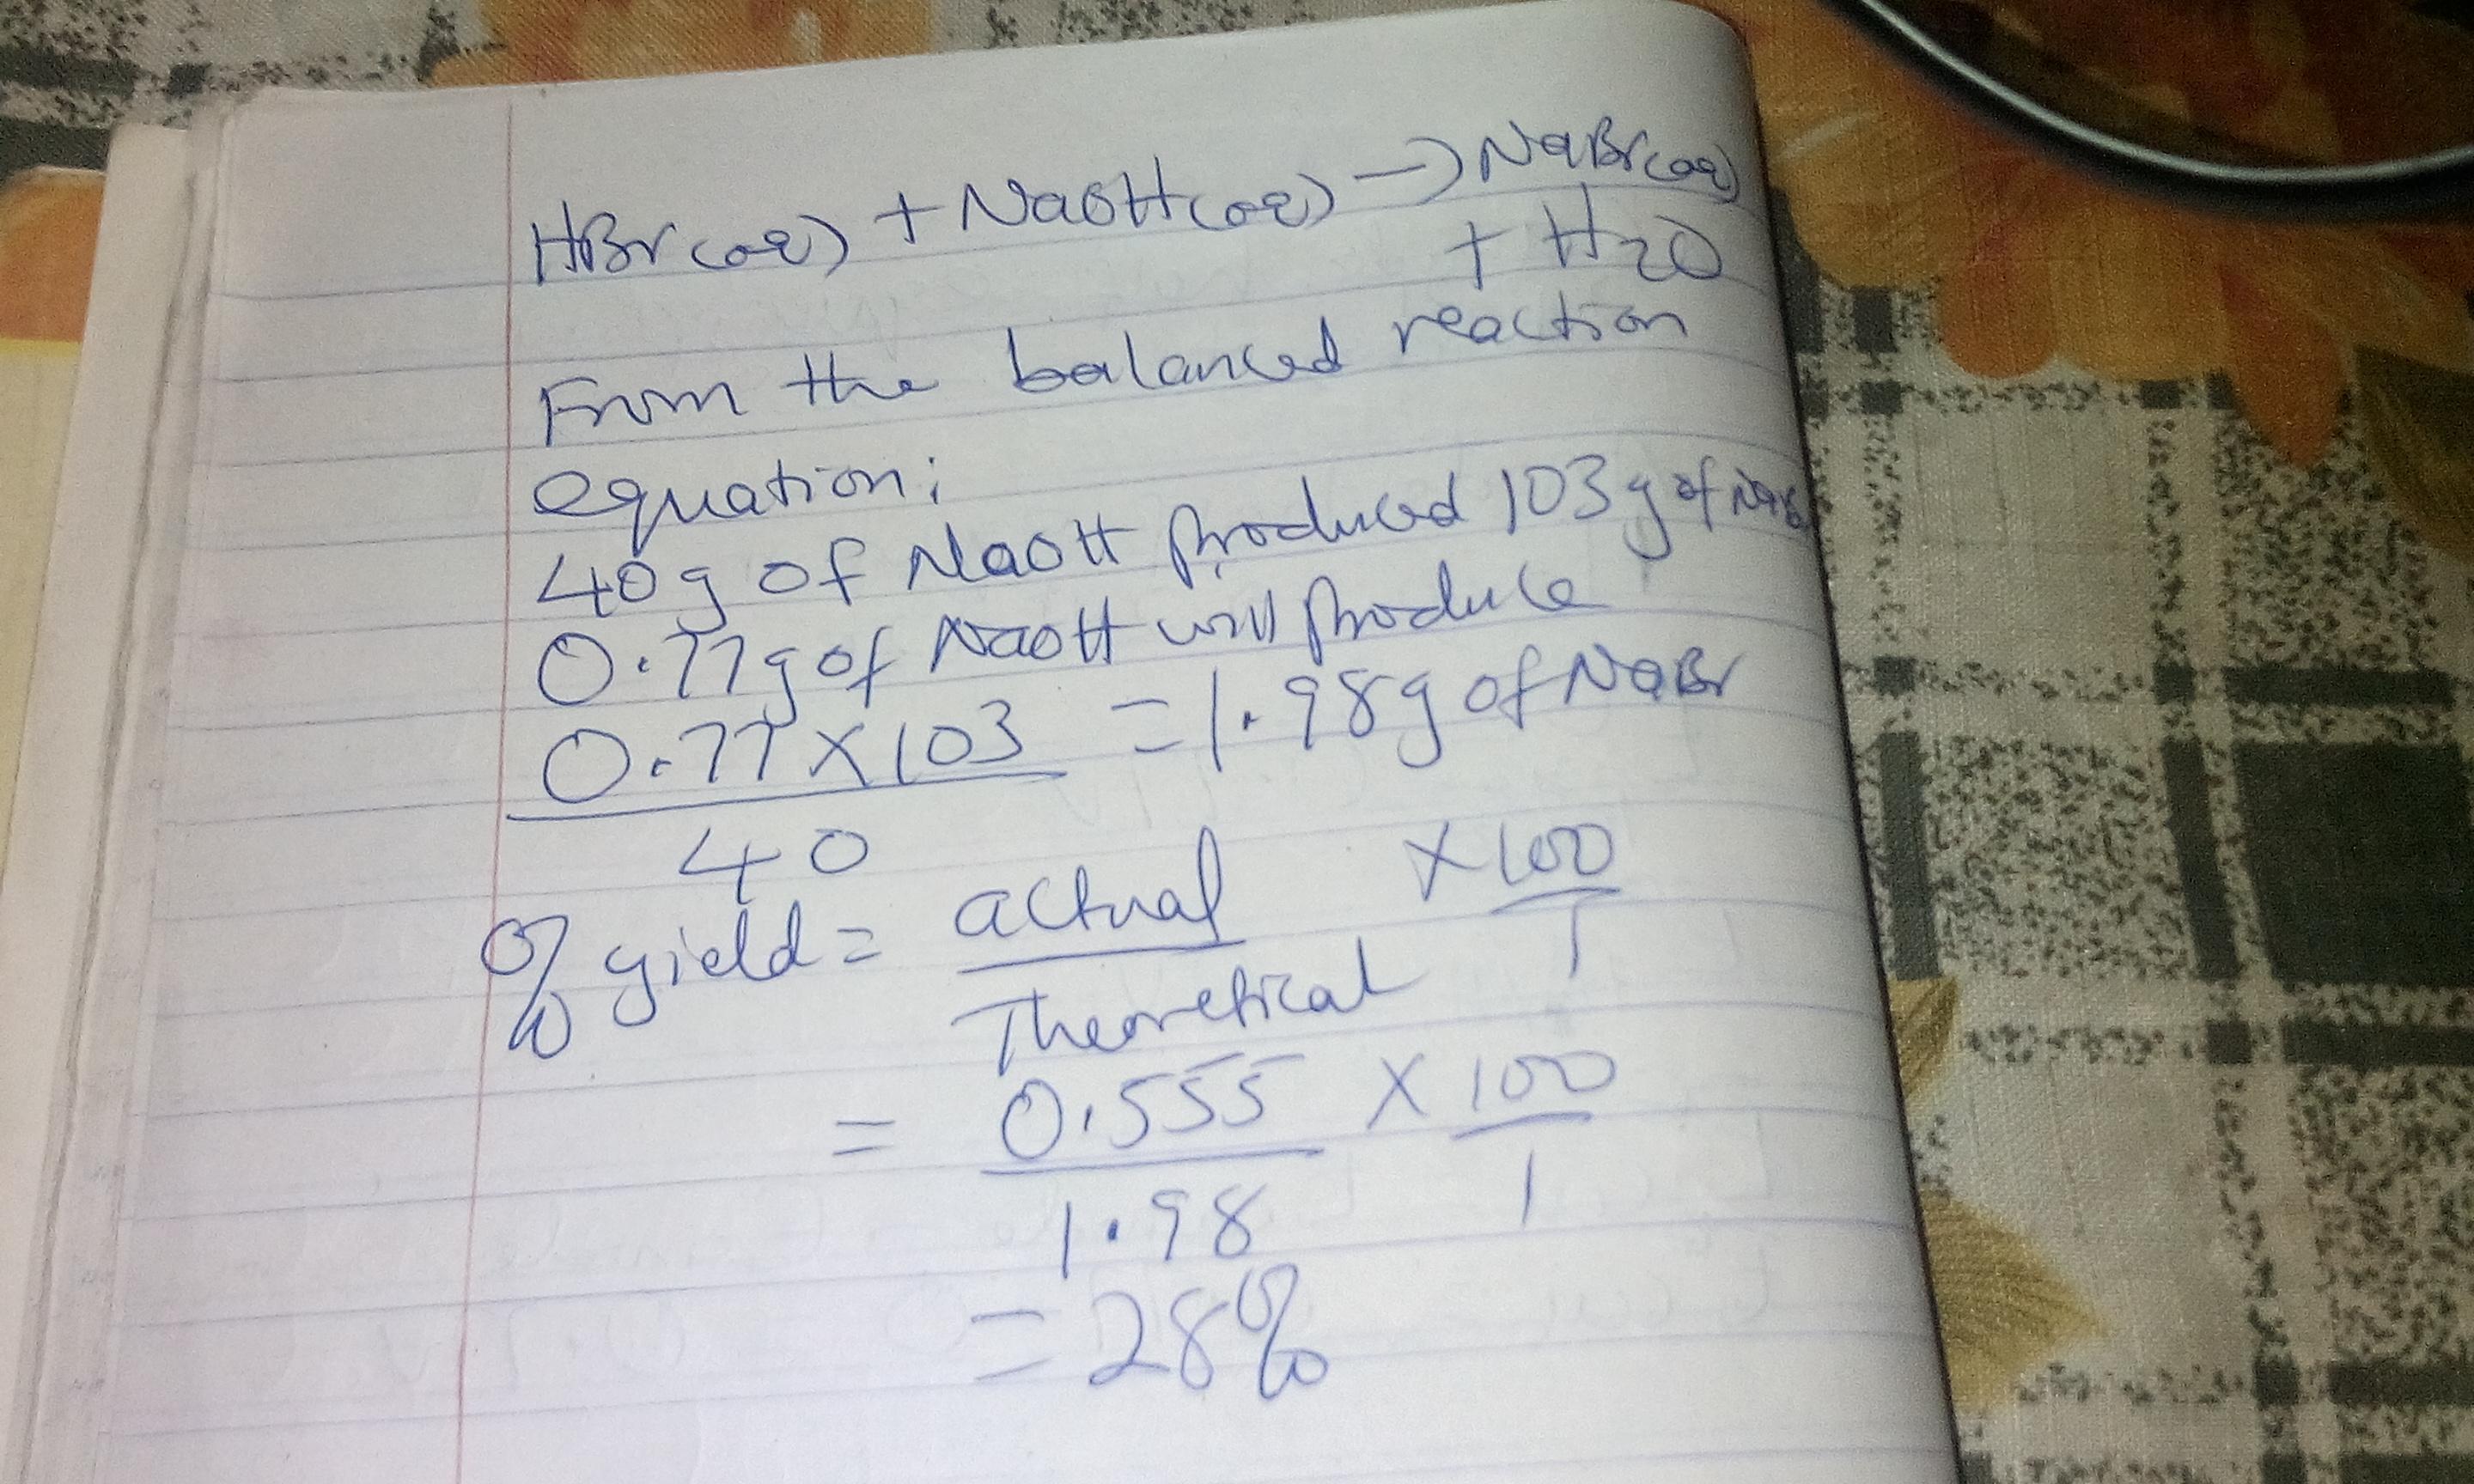 HBr(aq) + NaOH(aq) → NaBr(aq)
+ H2O
From the balanced reaction
equation;
40g of NaOH produced 103g of NaBr
0.77g of NaOH will produce
0.77 × 103 = 1.98g of NaBr
40
% yield = actual × 100
Theoretical 1
= 0.555 × 100
1.98 1
= 28%